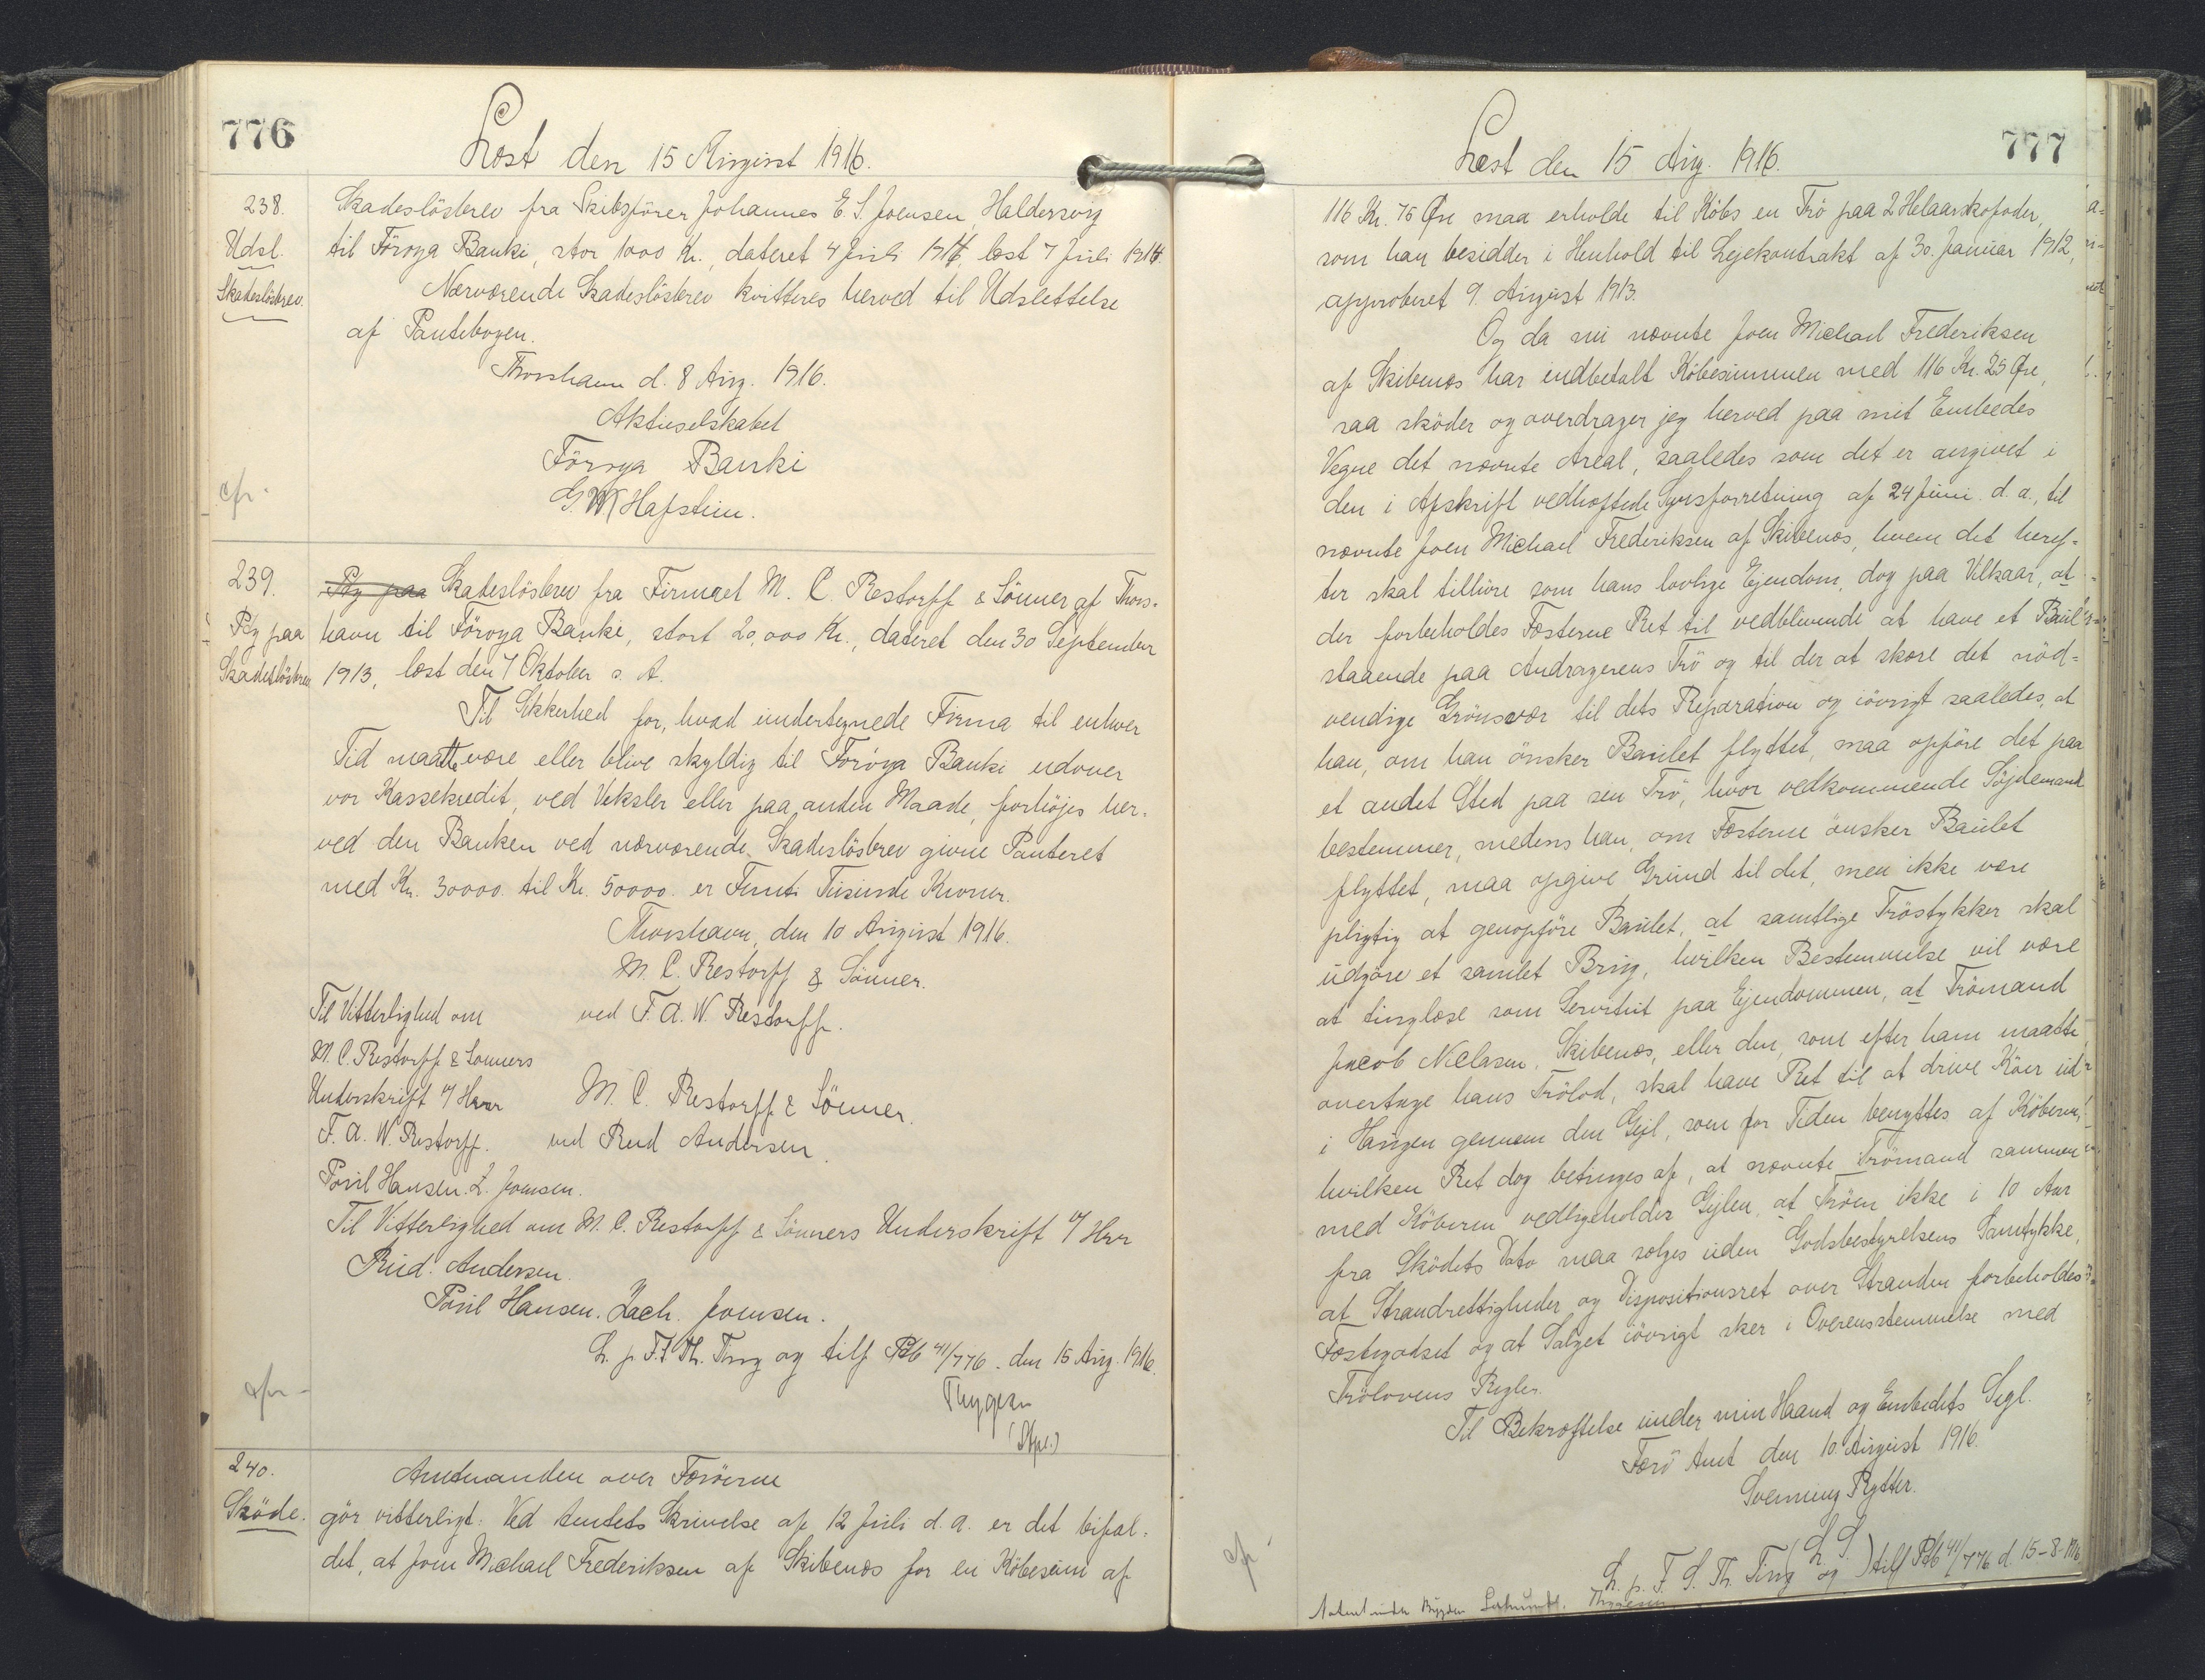 776
Læst den 15 August 1916.
238.
Udsl.
Skadeslösbrev.
Skadeslösbrev fra Skibsförer Johannes E. S. Joensen, Haldersvig
til Föroya Banki, stor 1000 Kr., dateret 4 Juli 1914, læst 7 Juli 1914.
Nærværende Skadeslösbrev kvitteres herved til Udslettelse
af Pantebogen.
Thorshavn d. 8 Aug. 1916.
Aktieselskabet
Föroya Banki
G. Hafstein.
cfr.
239.
Ptg paa
Skadeslösbrev
Ptg paa Skadeslösbrev fra Firmaet M. C. Restorff & Sönner af Thors-
havn til Föroya Banki, stort 20,000 Kr., dateret den 30 September
1913, læst den 7 Oktober s. A.
Til Sikkerhed for, hvad undertegnede Firma til enhver
Tid maatte være eller blive skyldig til Föroya Banki udover
vor Kassekredit, ved Veksler eller paa anden Maade, forhöjes her-
ved den Banken ved nærværende Skadeslösbrev givne Panteret
med Kr. 30000. til Kr. 50000. er Femti Tusinde Kroner.
Thorshavn, den 10 August 1916.
M. C. Restorff & Sönner.
Til Vitterlighed om
ved F. A. W. Restorff.
M. C. Restorff & Sönners
Underskrift v/ Herr
M. C. Restorff & Sönner.
F. A. W. Restorff.
ved Rud Andersen.
Povil Hansen. Z. Joensen.
Til Vitterlighed om M. C. Restorff & Sönners Underskrift v/ Hrr
Rud. Andersen.
Povil Hansen. Zach. Joensen.
L. p. F. S. Th. Ting og tilf Ptb 41/776. den 15 Aug. 1916.
Thygesen
(Stpl.)
cfr.
240.
Sköde.
Amtmanden over Færöerne
gör vitterligt: Ved Amtets Skrivelse af 12 Juli d. A. er det bifal-
det, at Joen Michael Frederiksen af Skibenæs for en Köbesum af
777
Læst den 15 Aug. 1916.
116 Kr. 75 Öre maa erholde til Köbs en Trö paa 2 Helaarskofoder,
som han besidder i Henhold til Lejekontrakt af 30. Januar 1912,
approberet 9. August 1913.
Og da nu nævnte Joen Michael Frederiksen
af Skibenæs har indbetalt Köbesummen med 116 Kr. 25 Öre,
saa sköder og overdrager jeg herved paa mit Embedes
Vegne det nævnte Areal, saaledes som det er angivet i
den i Afskrift vedhæftede Synsforretning af 24 Juni d. a., til
nævnte Joen Michael Frederiksen af Skibenæs, hvem det heref-
ter skal tilhöre som hans lovlige Ejendom, dog paa Vilkaar, at
der forbeholdes Fæsterne Ret til vedblivende at have et Baul
staaende paa Andragerens Trö og til der at skære det nöd-
vendige Grönsvær til dets Reparation og iövrigt saaledes, at
han, om han önsker Baulet flyttet, maa opföre det paa
et andet Sted paa sin Trö, hvor vedkommende Söjdemand
bestemmer, medens han, om Fæsterne önsker Baulet
flyttet, maa opgive Grund til det, men ikke være
pligtig at genopföre Baulet, at samtlige Tröstykker skal
udgöre et samlet Brug, hvilken Bestemmelse vil være
at tinglæse som Servitut paa Ejendommen, at Trömand
Jacob Niclasen, Skibenæs, eller den, som efter ham maatte
overtage hans Trölod, skal have Ret til at drive Köer ud
i Haugen gennem den Gejl, som for Tiden benyttes af Köberen,
hvilken Ret dog betinges af, at nævnte Trömand sammen
med Köberen vedligeholder Gejlen, at Tröen ikke i 10 Aar
fra Sködets Dato maa sælges uden Godsbestyrelsens Samtykke,
at Strandrettigheder og Dispositionsret over Stranden forbeholdes
Fæstegodset og at Salget iövrigt sker i Overensstemmelse med
Trölovens Regler.
Til Bekræftelse under min Haand og Embedets Segl.
Færö Amt den 10. August 1916.
Svenning Rytter.
(L. S.)
L. p. F. S. Th. Ting og tilf Ptb 41/776 d. 15-8-1916
Thygesen
cfr.